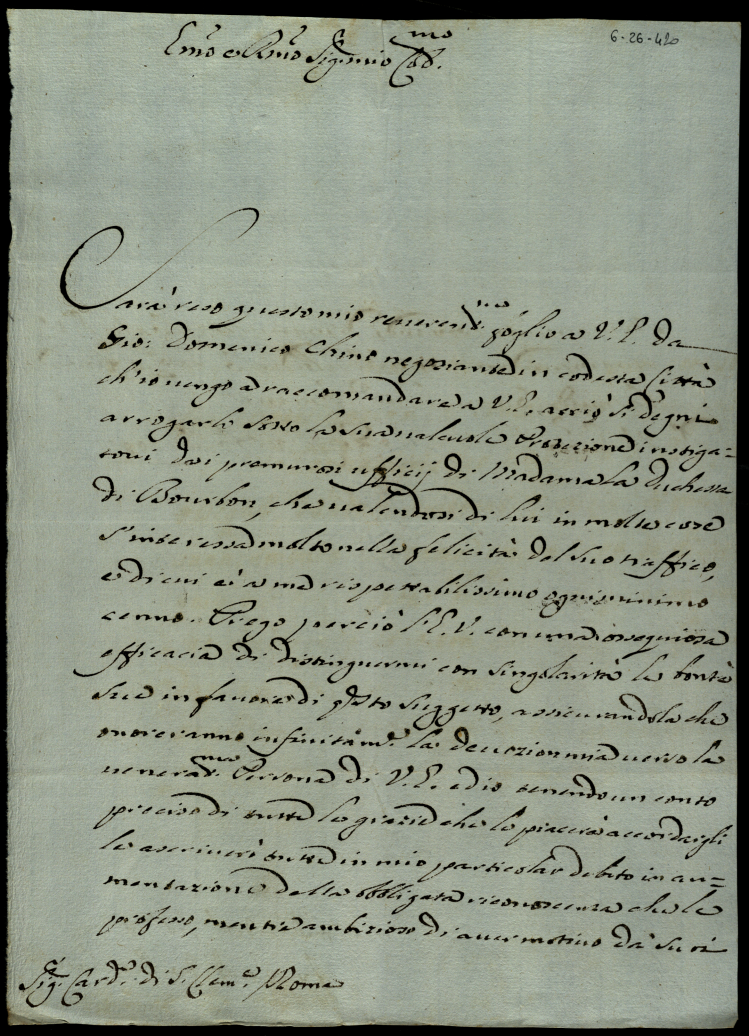 6-26-420
Emo e Rmo Sig. mio Cob.mo
Sarà reso questo mio reverendmo foglio a V.E. da
Gio: Domenico Chino negoziante in codesta Città
ch'io vengo à raccomandare a V.E. acciò si degni
arrogarlo sotto la sua valevole Protezione instiga=
tovi dai premurosi ufficij di Madama la Duchessa
di Bourbon, che valendosi di lui in molte cose
s'interessa molto nella felicità del suo traffico,
e di cui è a me rispettabilissimo ogni minimo
cenno. Prego perciò l'E.V. con una ossequiosa
efficacia di distinguermi con singolarità le bontà
sue in favore di qsto suggetto, assicurandola che
onoreranno infinitame. la devozion mia verso la
veneradma Persona di V.E. ed io tenendo un conto
preciso di tutte le grazie che le piacerà accordargli
le ascriverò tutte in mio particolar debito in au=
mentazione della obbligata riconoscenza che le
professo, mentre ambizioso di aver motivo da suoi
Sig. Card. di S. Clem.e Roma